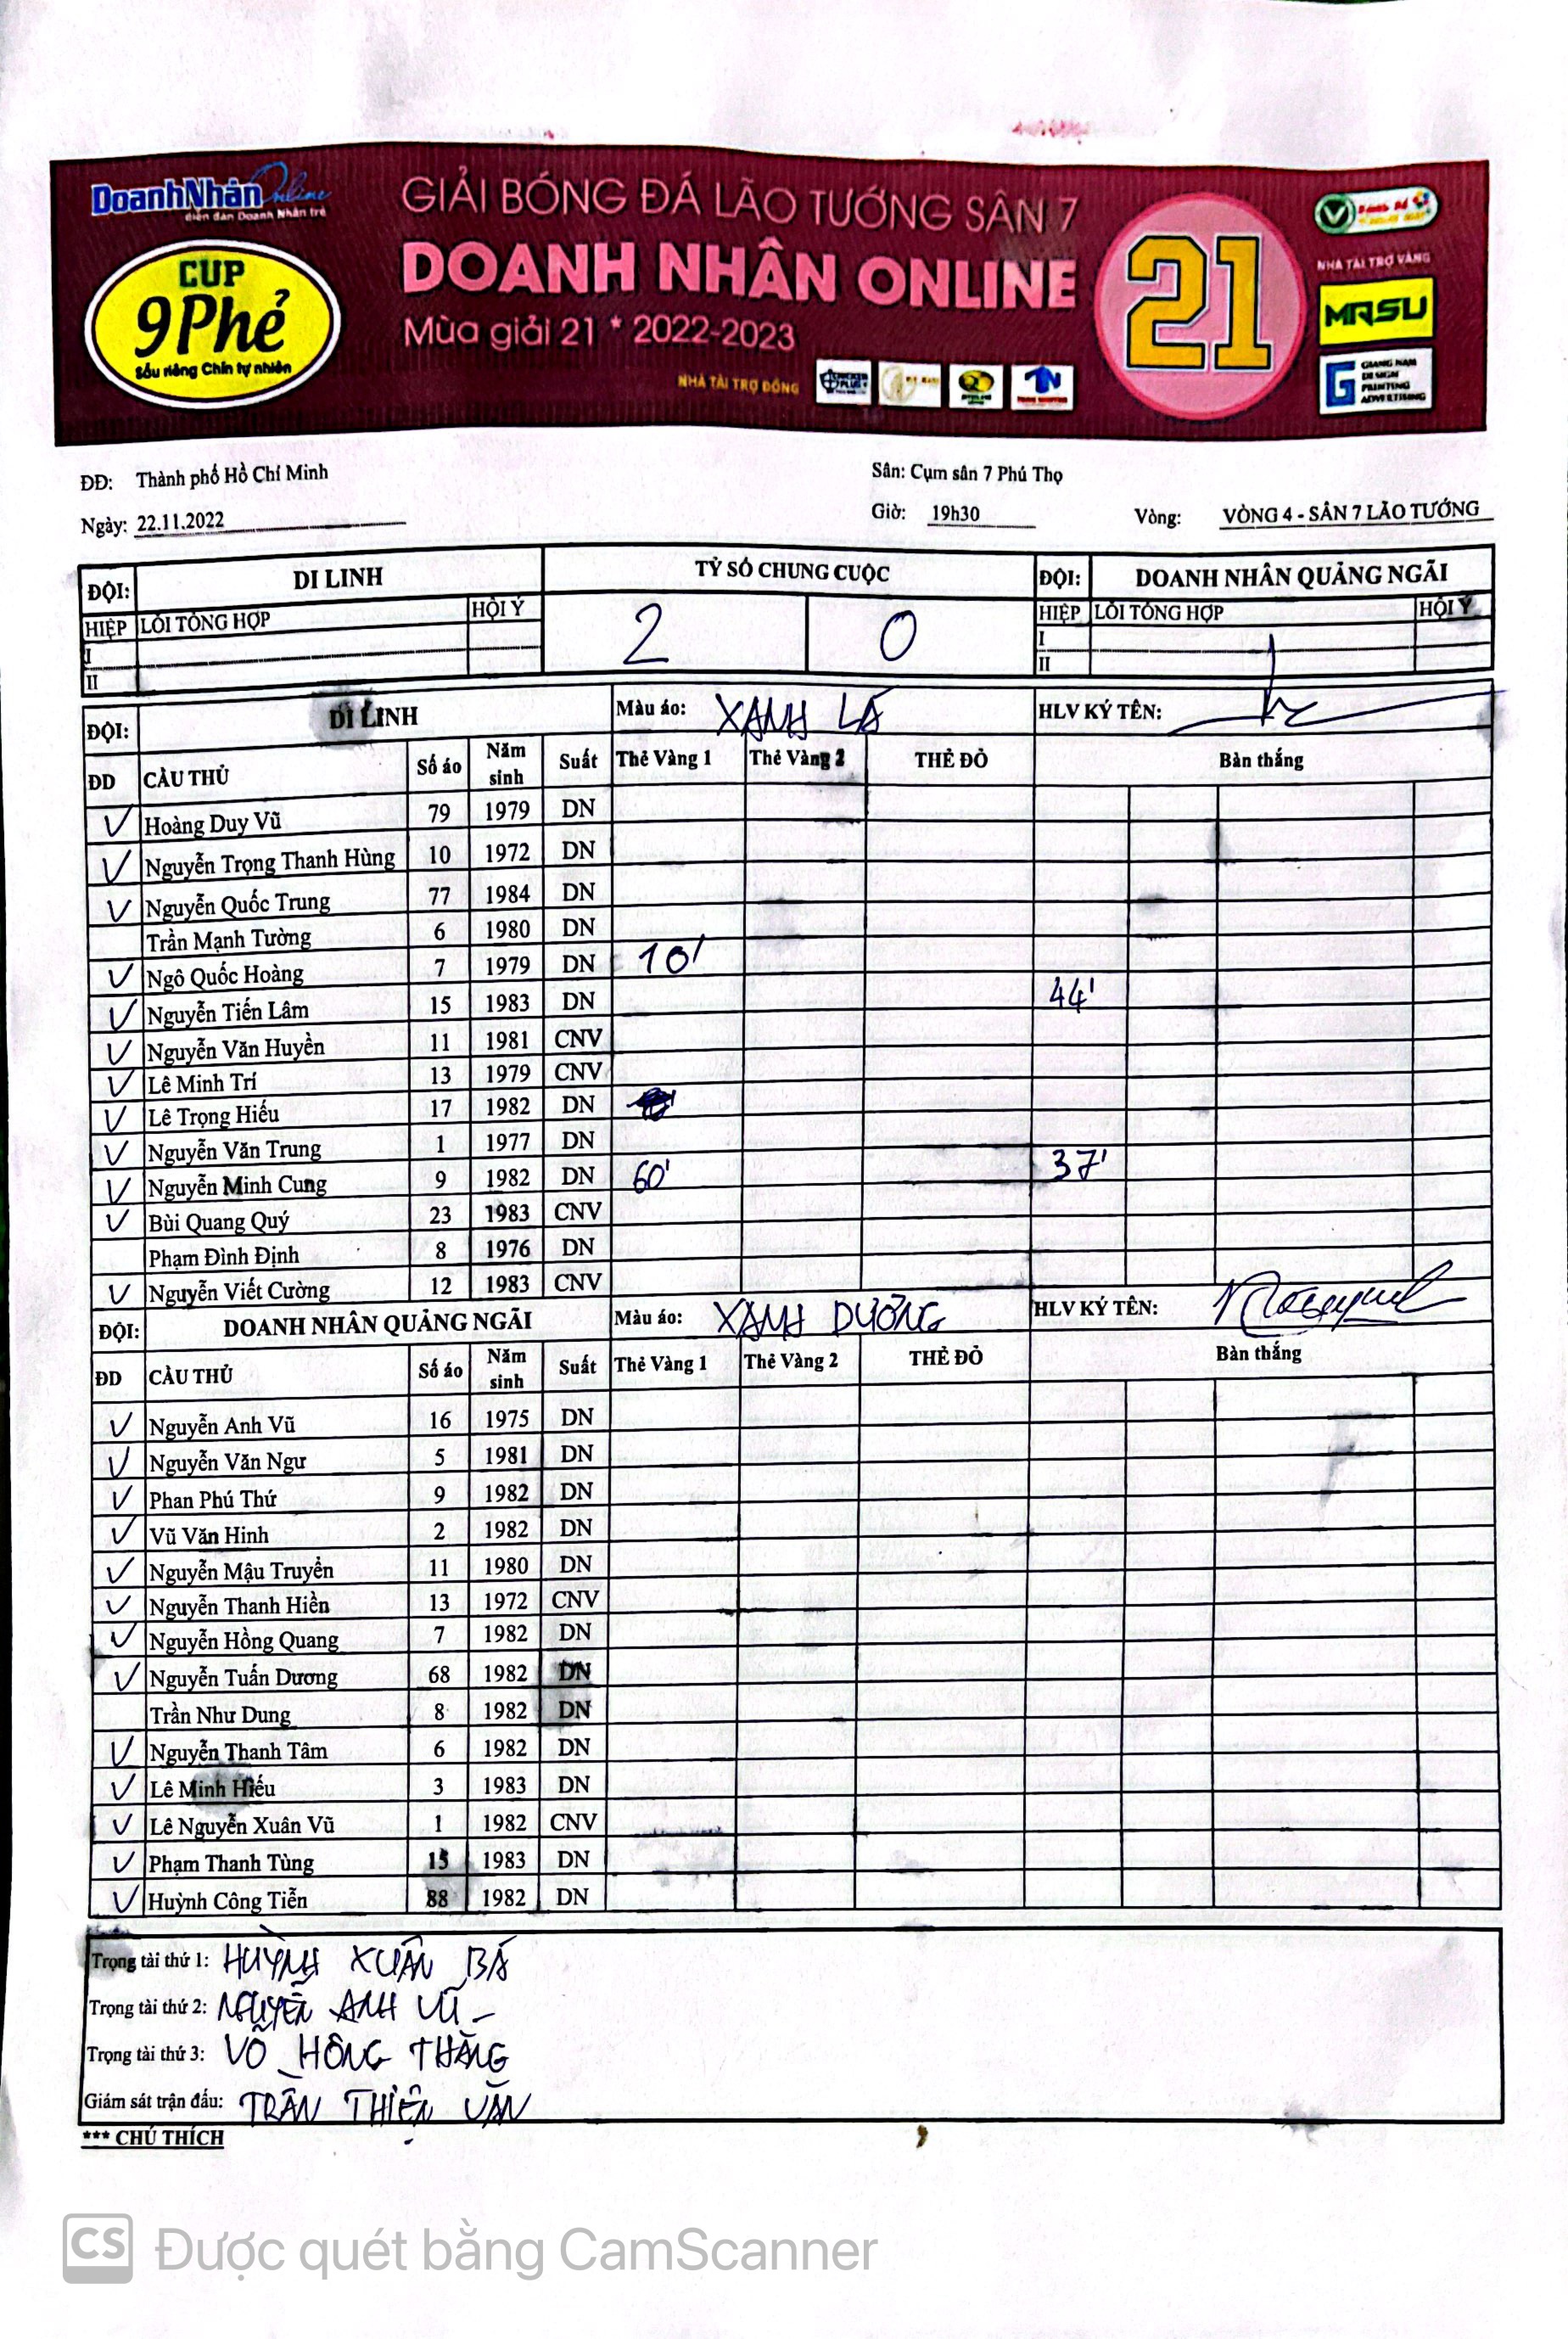 DoanhNhân Online
diễn đàn Doanh Nhân trẻ
CUP
9Phẻ
Sầu riêng Chín tự nhiên
GIẢI BÓNG ĐÁ LÃO TƯỚNG SÂN 7
DOANH NHÂN ONLINE
Mùa giải 21 * 2022-2023
NHÀ TÀI TRỢ ĐỒNG
21
NHÀ TÀI TRỢ VÀNG
MASU
GIANG NAM
DESIGN
PRINTING
ADVERTISING
ĐĐ: Thành phố Hồ Chí Minh Sân: Cụm sân 7 Phú Thọ
Ngày: 22.11.2022 Giờ: 19h30 Vòng: VÒNG 4 - SÂN 7 LÃO TƯỚNG
ĐỘI: DI LINH TỶ SỐ CHUNG CUỘC ĐỘI: DOANH NHÂN QUẢNG NGÃI
HIỆP LỖI TỔNG HỢP HỘI Ý 2 0 HIỆP LỖI TỔNG HỢP HỘI Ý
I I
II II
ĐỘI: DI LINH Màu áo: XANH LÁ HLV KÝ TÊN:
ĐD CẦU THỦ Số áo Năm sinh Suất Thẻ Vàng 1 Thẻ Vàng 2 THẺ ĐỎ Bàn thắng
V Hoàng Duy Vũ 79 1979 DN
V Nguyễn Trọng Thanh Hùng 10 1972 DN
V Nguyễn Quốc Trung 77 1984 DN
Trần Mạnh Tường 6 1980 DN
V Ngô Quốc Hoàng 7 1979 DN 10'
V Nguyễn Tiến Lâm 15 1983 DN 44'
V Nguyễn Văn Huyền 11 1981 CNV
V Lê Minh Trí 13 1979 CNV
V Lê Trọng Hiếu 17 1982 DN
V Nguyễn Văn Trung 1 1977 DN
V Nguyễn Minh Cung 9 1982 DN 60' 37'
V Bùi Quang Quý 23 1983 CNV
Phạm Đình Định 8 1976 DN
V Nguyễn Viết Cường 12 1983 CNV
ĐỘI: DOANH NHÂN QUẢNG NGÃI Màu áo: XANH DƯƠNG HLV KÝ TÊN:
ĐD CẦU THỦ Số áo Năm sinh Suất Thẻ Vàng 1 Thẻ Vàng 2 THẺ ĐỎ Bàn thắng
V Nguyễn Anh Vũ 16 1975 DN
V Nguyễn Văn Ngư 5 1981 DN
V Phan Phú Thứ 9 1982 DN
V Vũ Văn Hinh 2 1982 DN
V Nguyễn Mậu Truyền 11 1980 DN
V Nguyễn Thanh Hiền 13 1972 CNV
V Nguyễn Hồng Quang 7 1982 DN
V Nguyễn Tuấn Dương 68 1982 DN
Trần Như Dung 8 1982 DN
V Nguyễn Thanh Tâm 6 1982 DN
V Lê Minh Hiếu 3 1983 DN
V Lê Nguyễn Xuân Vũ 1 1982 CNV
V Phạm Thanh Tùng 15 1983 DN
V Huỳnh Công Tiễn 88 1982 DN
Trọng tài thứ 1: HUỲNH XUÂN BÁ
Trọng tài thứ 2: NGUYỄN ANH VŨ
Trọng tài thứ 3: VÕ HỒNG THẮNG
Giám sát trận đấu: TRẦN THIỆN VĂN
*** CHÚ THÍCH
CS Được quét bằng CamScanner